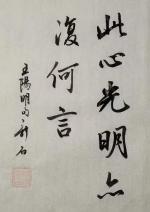 此心光明亦
復何言
王陽明句